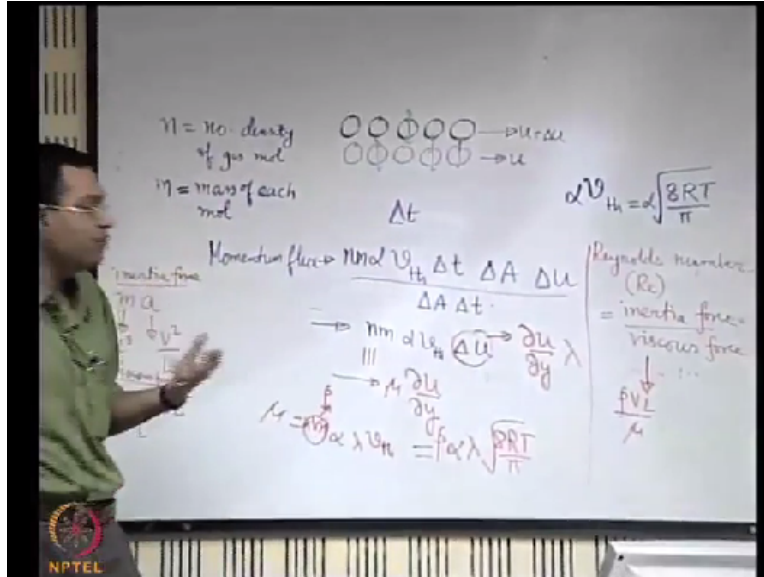 n = no. density
of gas mol
m = mass of each
mol
u+Δu
u
Δt
α υ_th = α √(8RT/π)
Momentum flux → nmα υ_th Δt ΔA Δu / ΔA Δt
→ nm α υ_th Δu → ∂u/∂y λ
|||
→ μ ∂u/∂y
ρ
μ = nm α λ υ_th = ρ α λ √(8RT/π)
inertia force
m a
V²
Reynolds number
(Re)
= inertia force
viscous force
ρVL
μ
NPTEL